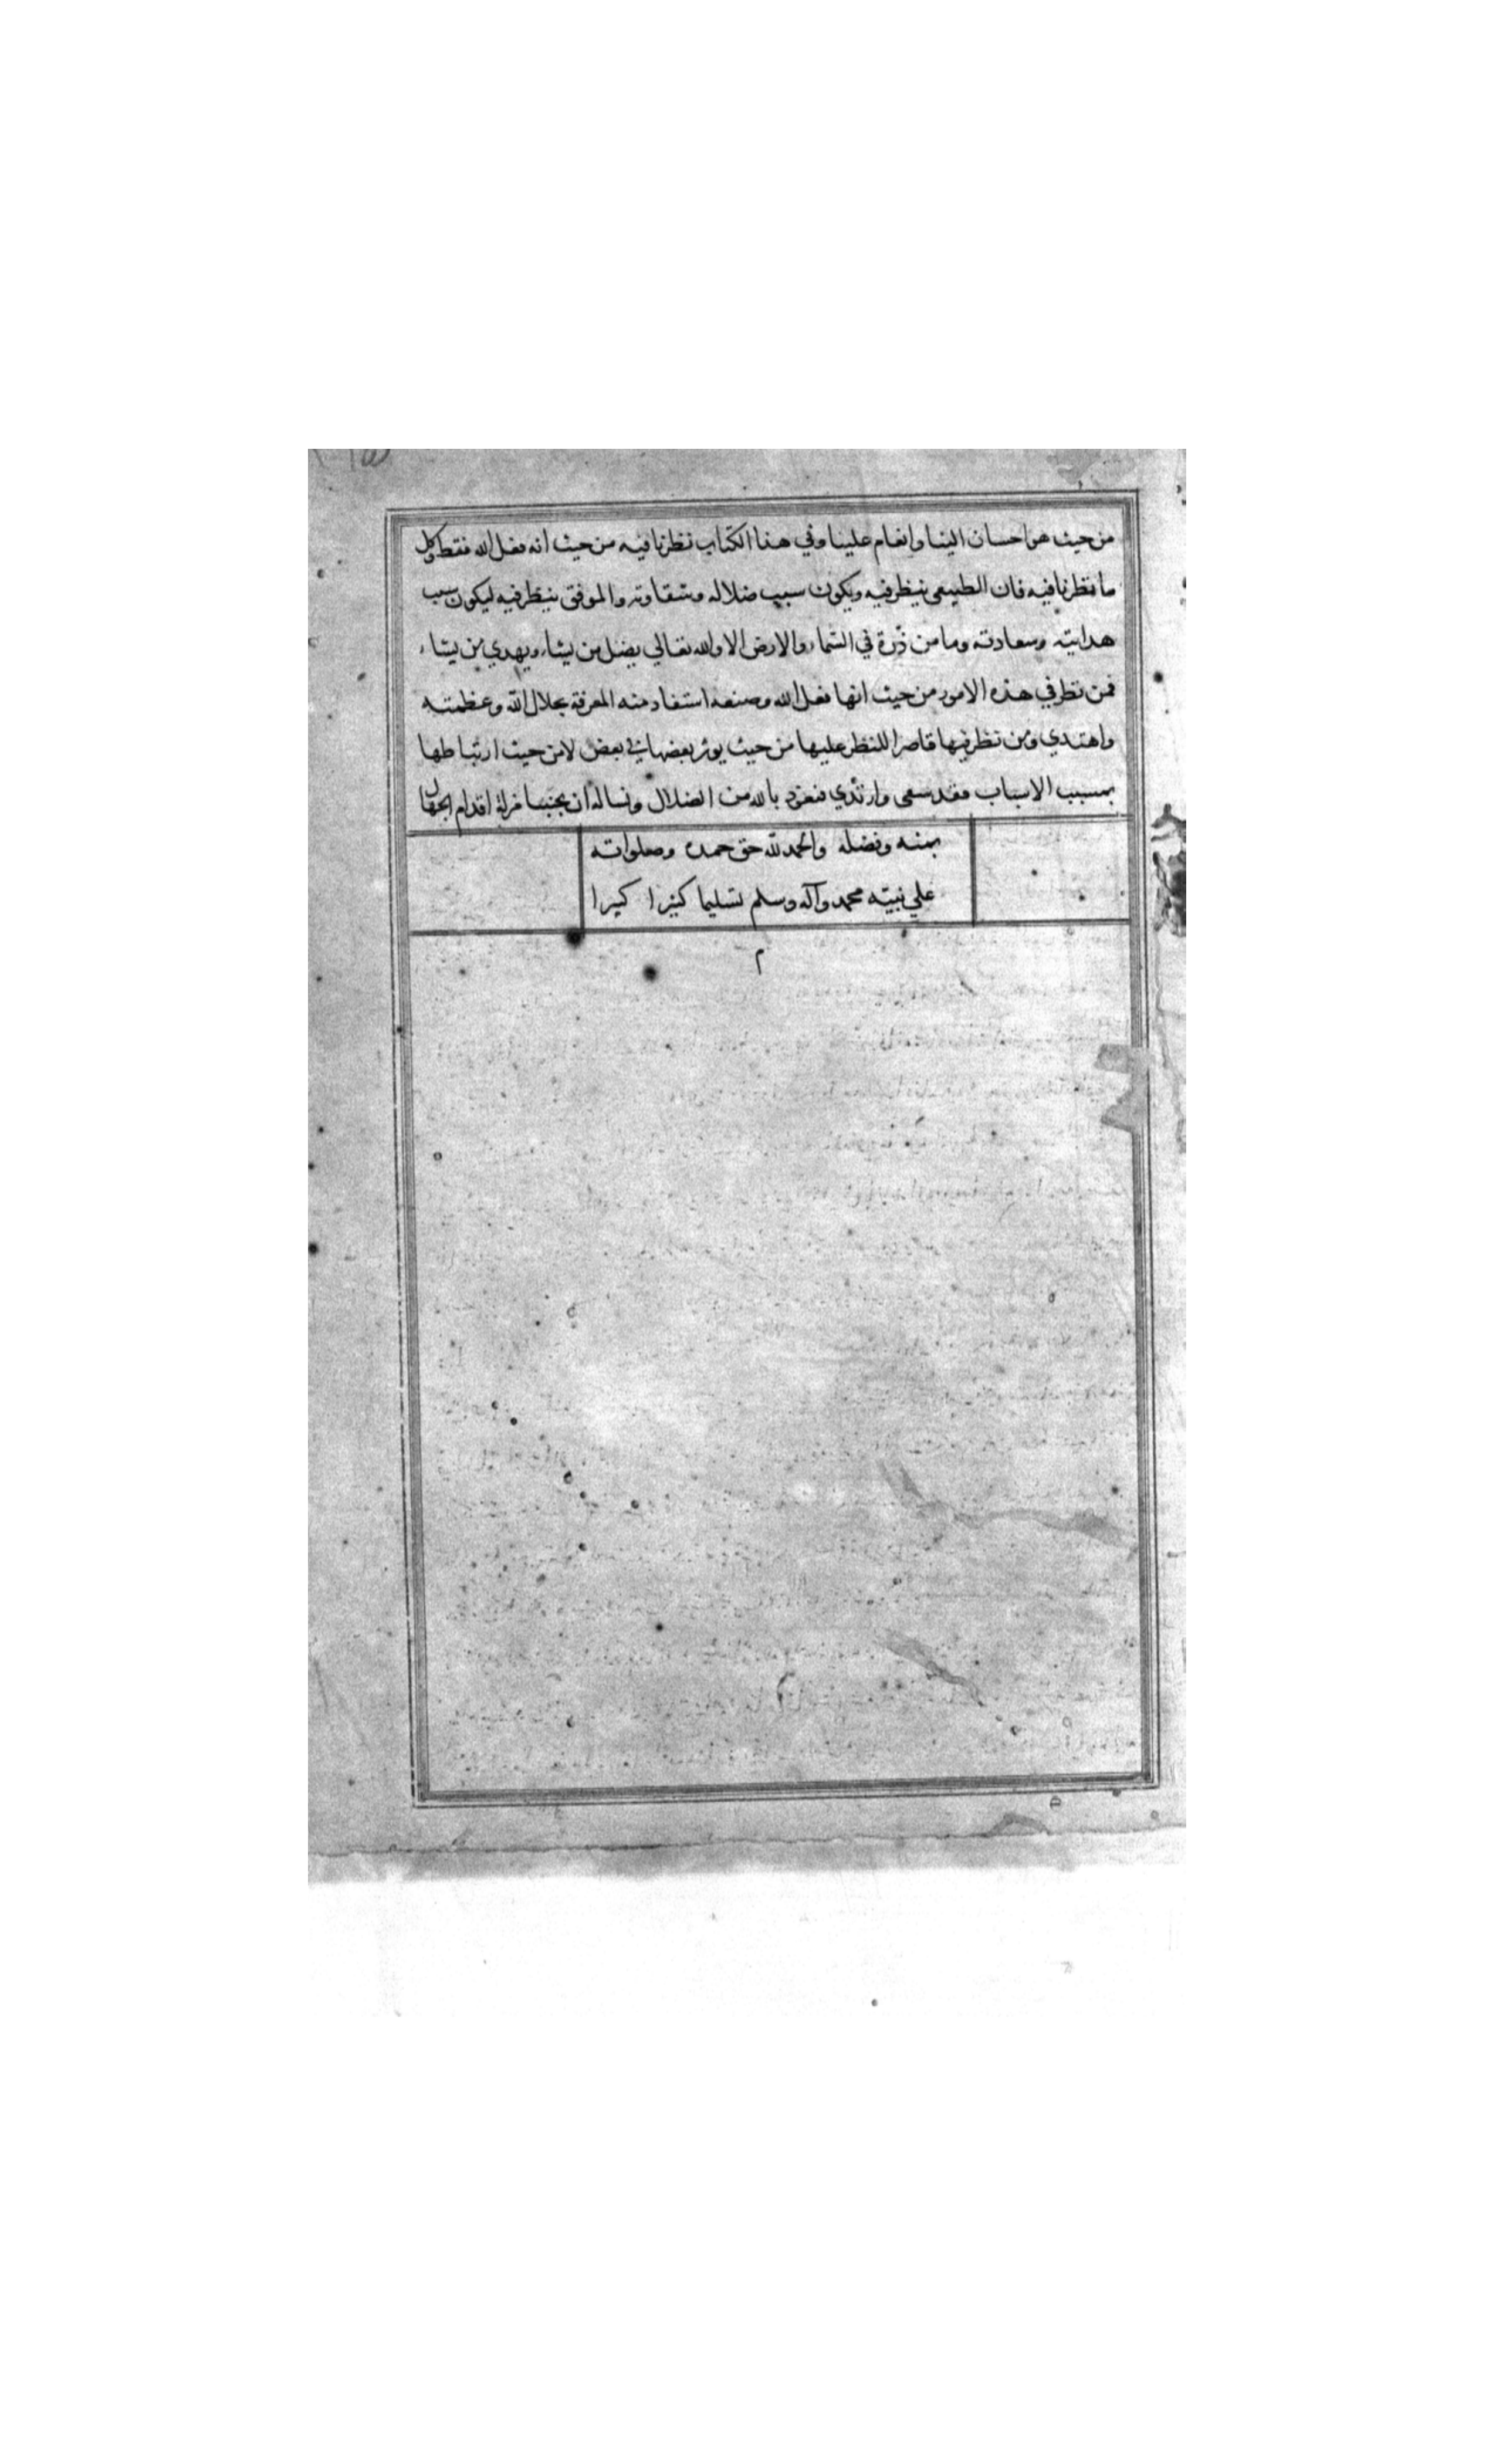 من حيث هو احسان الينا وانعام علينا وفي هذا الكتاب نظرنا فيه من حيث انه فعل الله فقط وكل
ما نظرنا فيه فان الطبيعي ينظر فيه ويكون سبب ضلاله وشقاوته والموفق ينظر فيه ليكون سبب
هدايته وسعادته وما من ذرة في السماء والارض الا والله تعالي يضل من يشاء ويهدي من يشاء
فمن نظر في هذه الامور من حيث انها فعل الله وصنعه استفاد منه المعرفة بجلال الله وعظمته
واهتدي ومن نظر فيها قاصرا للنظر عليها من حيث يوثر بعضها في بعض لا من حيث ارتباطها
بمسبب الاسباب فقد سعي وارتدي فنعوذ بالله من الضلال ونساله ان يجنبنا مزلة اقدام الجهال
بمنه وفضله والحمد لله حق حمده وصلواته
علي نبيته محمد وآله وسلم تسليما كثيرا كبيرا
م